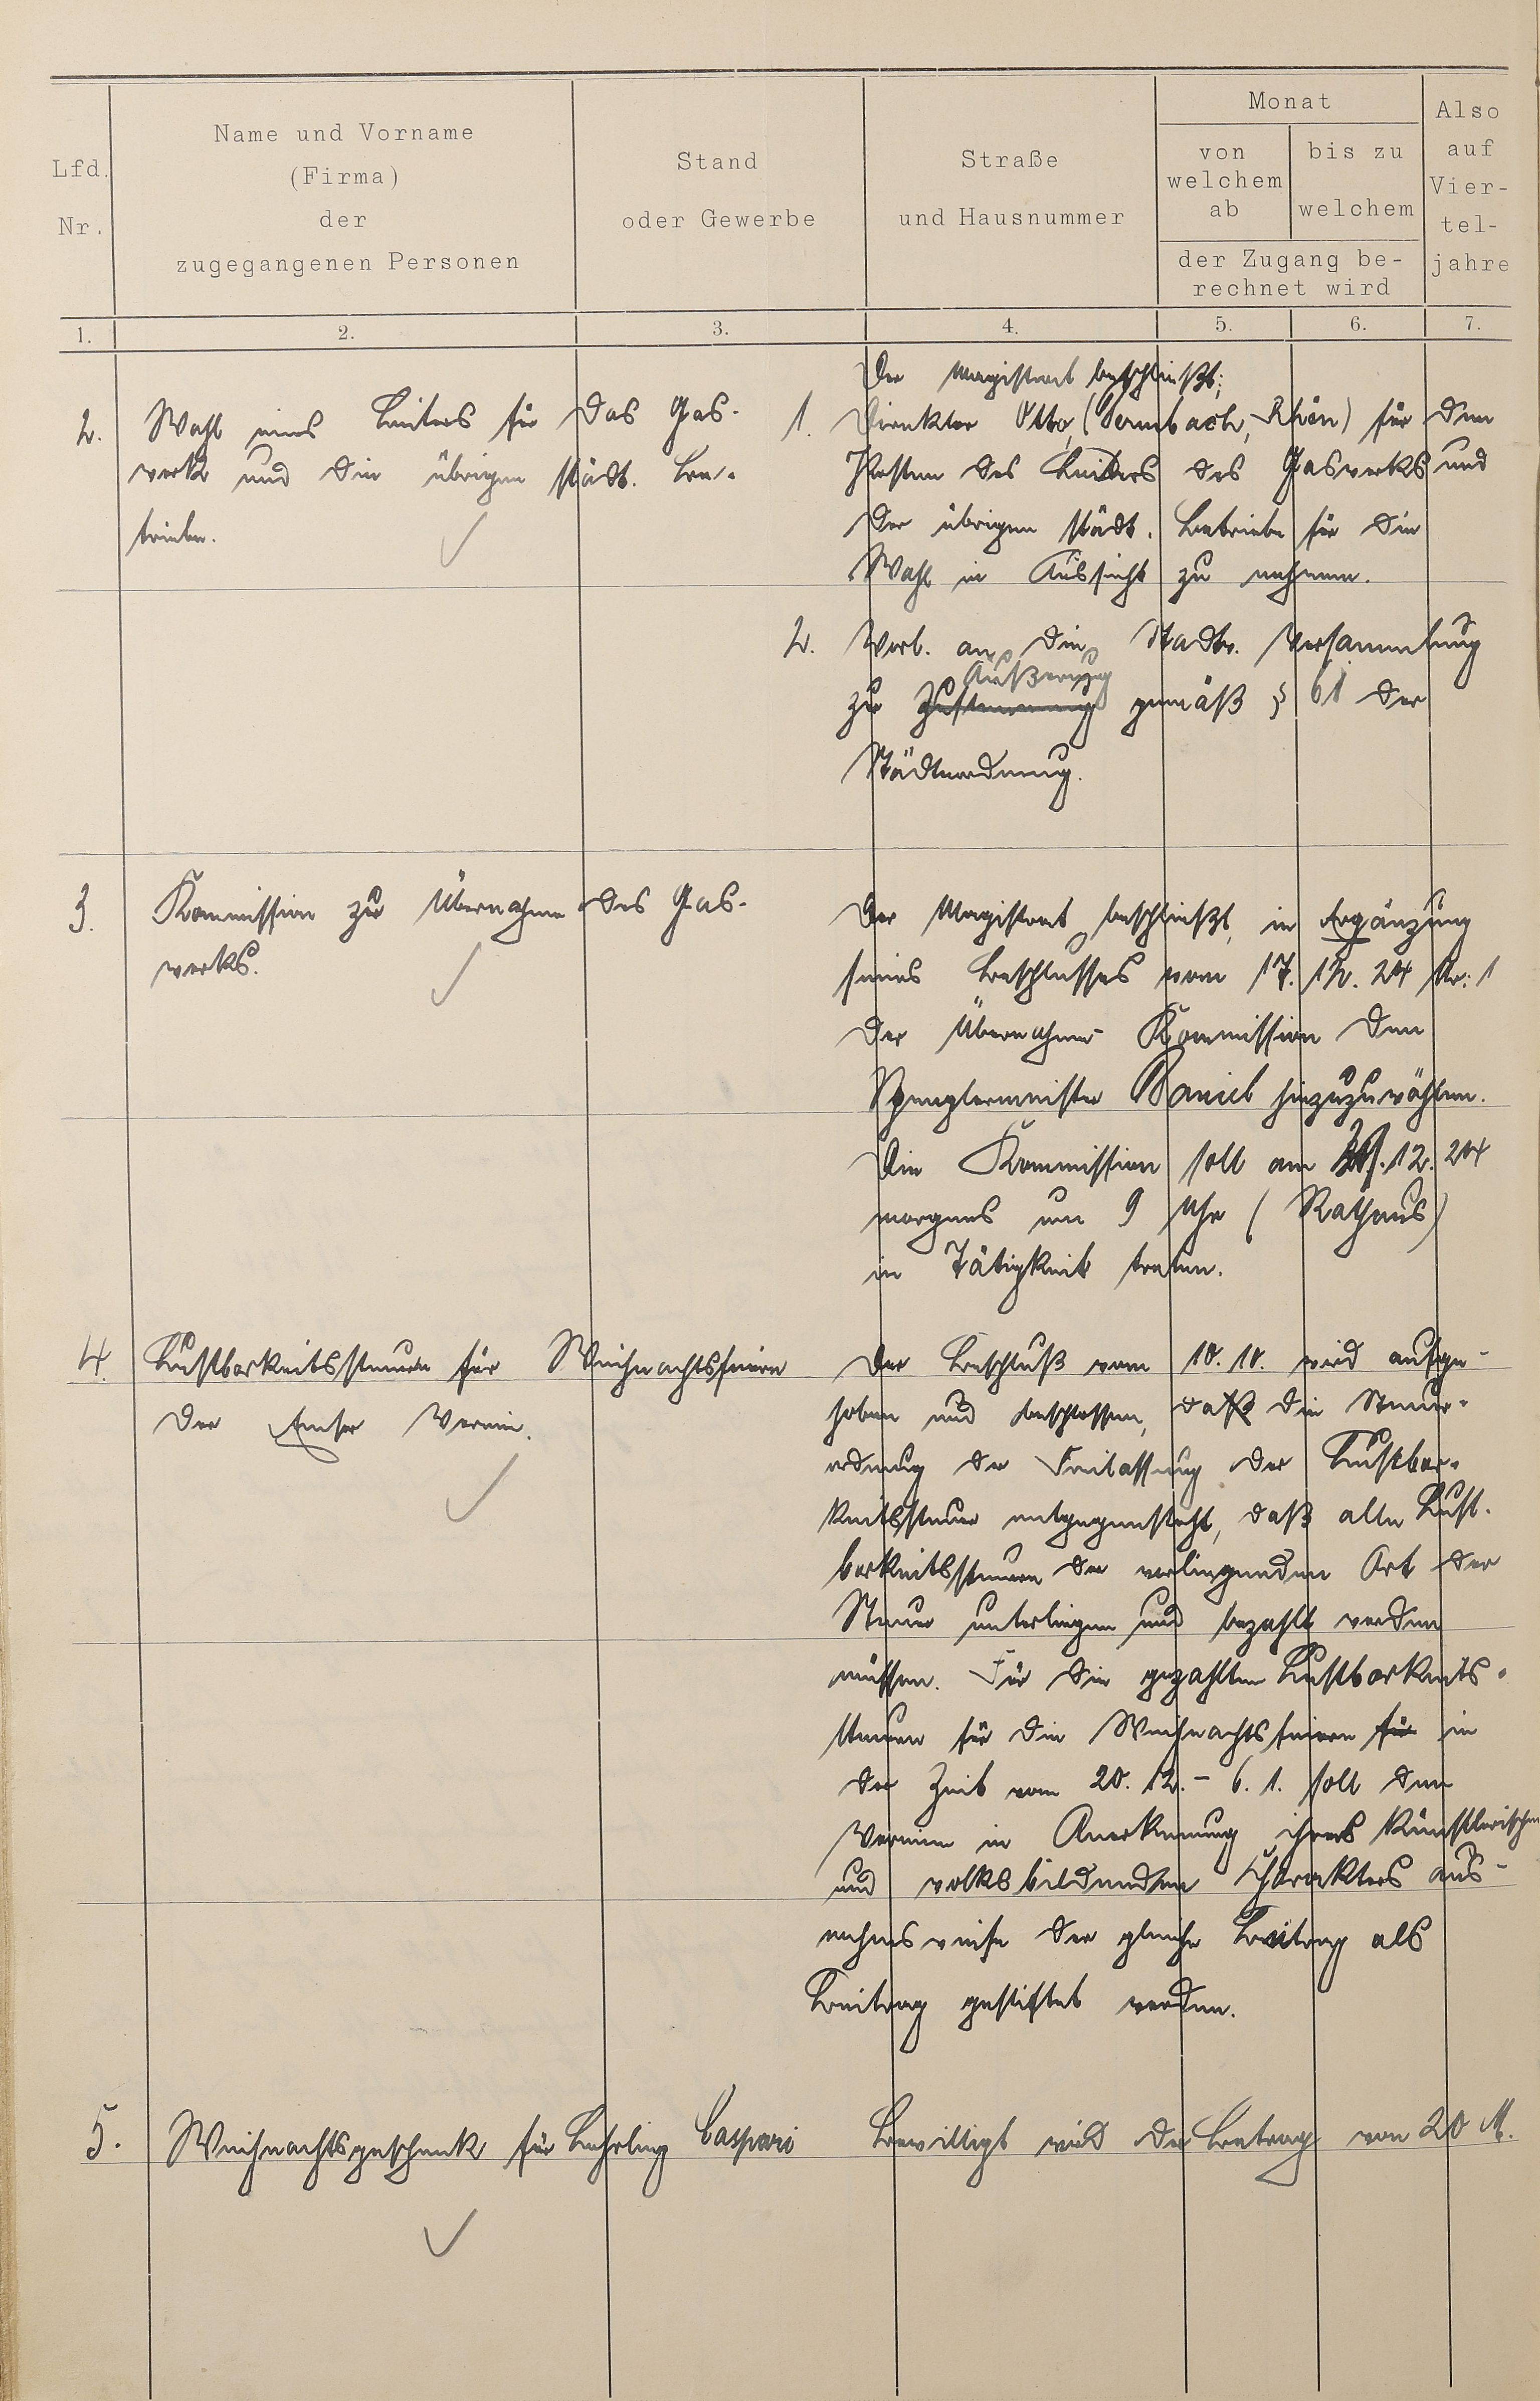 Lfd.
Nr.
Name und Vorname
(Firma)
der
zugegangenen Personen
Stand
oder Gewerbe
Straße
und Hausnummer
Monat
von
welchem
ab
bis zu
welchem
der Zugang be-
rechnet wird
Also
auf
Vier-
tel-
jahre
1.
2.
3.
4.
5.
6.
7.
2.
Wahl eines Leiters für das Gas-
werk und die übrigen städt. Be-
triebe.
Der Magistrat beschließt:
1. Direktor Otto, (Dermbach, Rhön) für den
Posten des Leiters des Gaswerks und
der übrigen städt. Betriebe für die
Wahl in Aussicht zu nehmen.
2. Vorl. an die Stadtv. Versammlung
Äußerung
zur Zustimmung gemäß § 61 der
Städteordnung.
3.
Kommission zur Übernahme des Gas-
werks.
Der Magistrat beschließt, in Ergänzung
seines Beschlusses vom 17. 12. 24 Nr: 1
der Übernahme Kommission den
Spenglermeister Daniel hinzuzuwählen.
Die Kommission soll am 12. 24
morgens um 9 Uhr (Rathaus)
in Tätigkeit treten.
4.
Lustbarkeitssteuern für Weihnachtsfeiern
der Emser Verein.
Der Beschluß vom 10. 10. wird aufge-
hoben und beschlossen, daß die Steuer-
ordnung der Freilassung der Lustbar-
keitssteuer entgegensteht, daß alle Lust-
barkeitssteuern der vorliegenden Art der
Steuer unterliegen und bezahlt werden
müssen. Für die gezahlten Lustbarkeits-
steuern für die Weihnachtsfeiern für in
der Zeit vom 20. 12. - 6. 1. soll den
Vereinen in Anerkennung ihres künstlerischen
und volksbildenden Charakters aus-
nahmsweise der gleiche Beitrag als
Beitrag gestiftet werden.
5.
Weihnachtsgeschenk für Lehrling Caspari
Bewilligt wird der Betrag von 20 M.